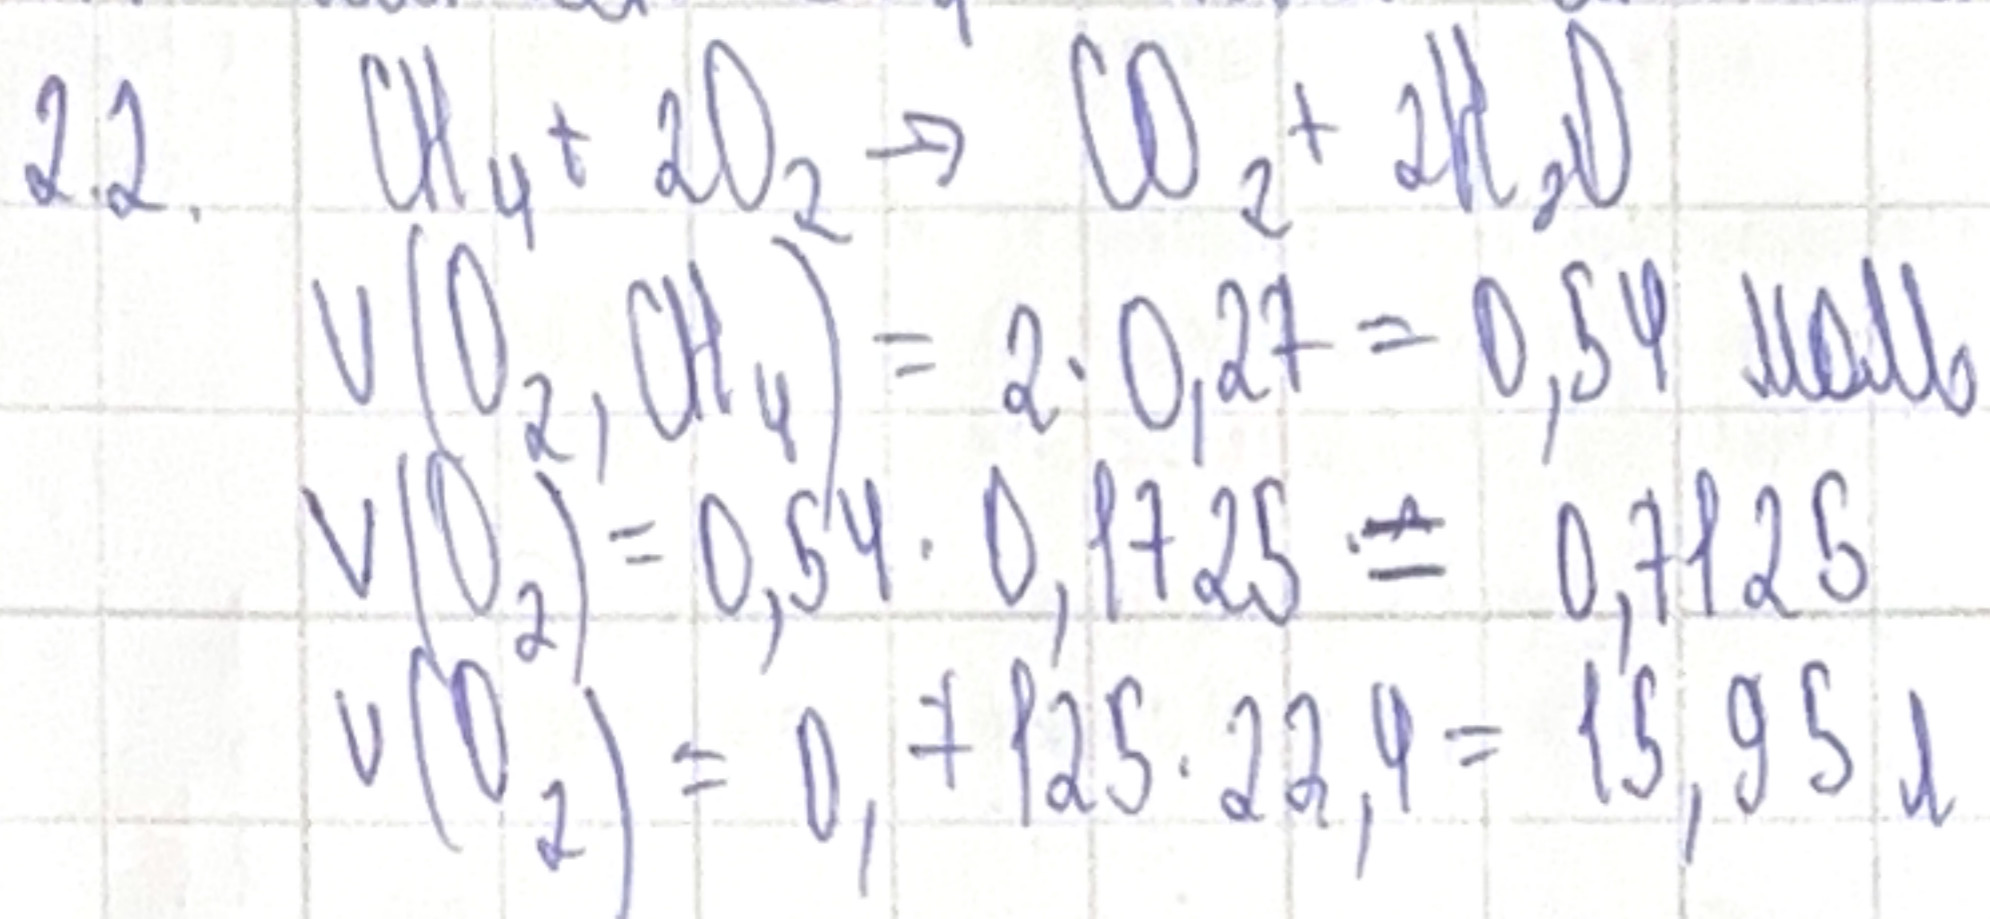 2.2. CH₄ + 2O₂ → CO₂ + 2H₂O
ν(O₂, CH₄) = 2 · 0,27 = 0,54 моль
ν(O₂) = 0,54 · 0,1725 = 0,7125
V(O₂) = 0,7125 · 22,4 = 15,95 л